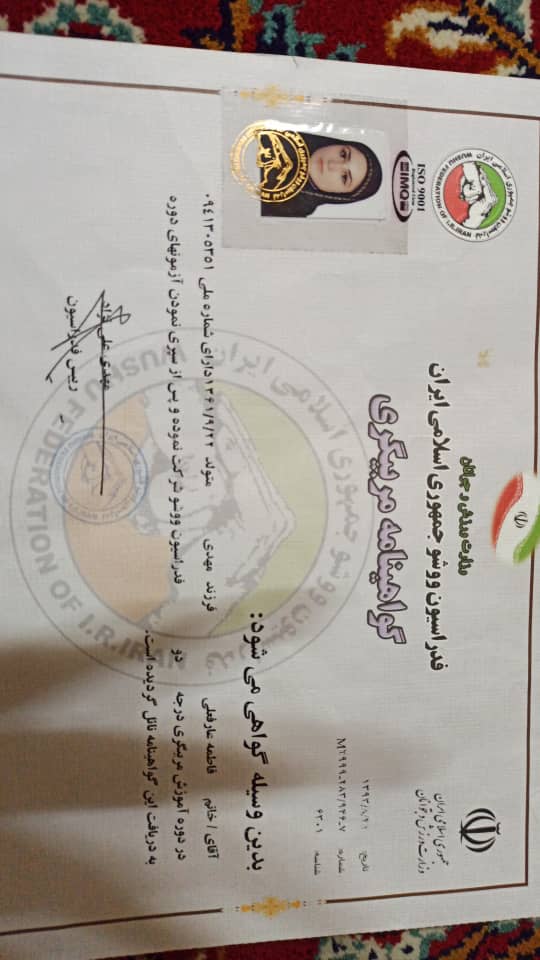 جمهوری اسلامی ایران
وزارت ورزش و جوانان
وزارت ورزش و جوانان
فدراسیون ووشو جمهوری اسلامی ایران
گواهینامه مربیگری
فدراسیون ووشو جمهوری اسلامی ایران
WUSHU FEDERATION OF I.R.IRAN
ISO 9001
IMQ
تاریخ:
شماره: M2999-283/946-7
شناسه: 6301
بدین وسیله گواهی می شود:
آقای / خانم فاطمه عارفعلی فرزند مهدی متولد ۱۳۶۱/۹/۲۲ دارای شماره ملی ۰۹۴۱۳۰۵۳۵۱
در دوره آموزش مربیگری درجه دو فدراسیون ووشو شرکت نموده و پس از سپری نمودن آزمونهای دوره
به دریافت این گواهینامه نائل گردیده است.
مهدی علی نژاد
رییس فدراسیون
فدراسیون ووشو جمهوری اسلامی ایران
WUSHU FEDERATION OF I.R.IRAN